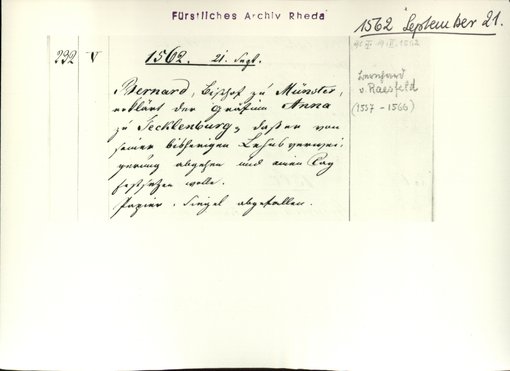 Fürstliches Archiv Rheda
1562 September 21.
232 V
1562. 21. Sept.
Bernard, Bischof zu Münster,
erklärt der Gräfinn Anna
zu Tecklenburg, daß er von
seiner bisherigen Lehnsverwei-
gerung abgehen und einen Tag
festsetzen wolle.
Papier. Siegel abgefallen.
Bernhard
v. Raesfeld
(1557 - 1566)